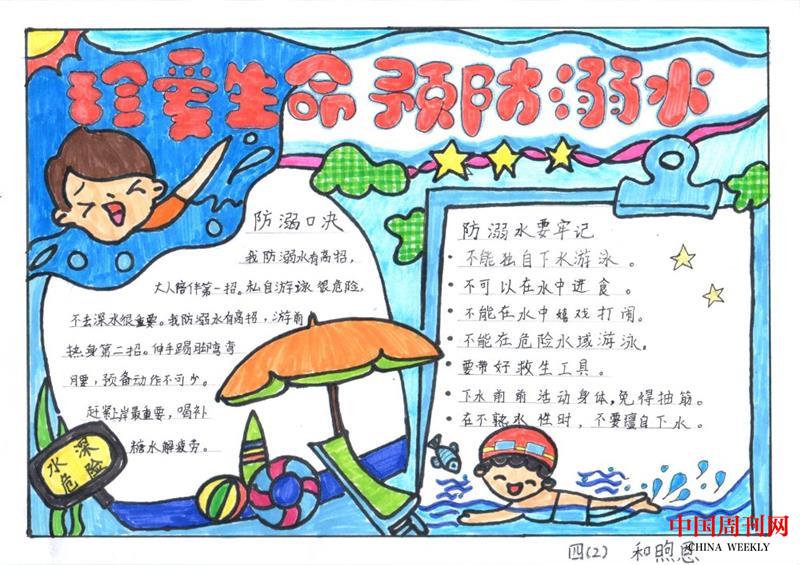 珍爱生命 预防溺水
防溺口决
我防溺水有高招，
大人陪伴第一招。私自游泳很危险，
不去深水很重要。我防溺水有高招，游前
热身第二招。伸手踢腿弯弯
腰，预备动作不可少。
赶紧上岸最重要，喝补
糖水解疲劳。
水深
危险
防溺水要牢记
· 不能独自下水游泳。
· 不可以在水中进食。
· 不能在水中嬉戏打闹。
· 不能在危险水域游泳。
· 要带好救生工具。
· 下水前前活动身体，免得抽筋。
· 在不熟水性时，不要擅自下水。
四(2) 和煦恩
中国周刊网
CHINA WEEKLY